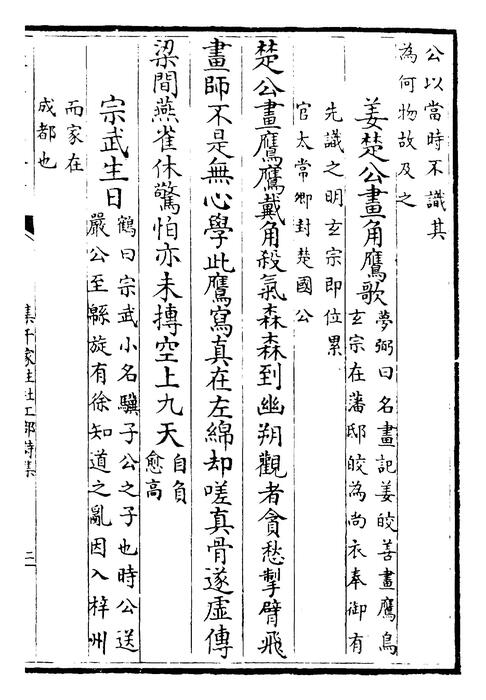 公以當時不識其
為何物故及之
姜楚公畫角鷹歌
夢弼曰名畫記姜皎善畫鷹鳥
玄宗在藩邸皎為尚衣奉御有
先識之明玄宗即位累
官太常卿封楚國公
楚公畫鷹鷹戴角殺氣森森到幽朔觀者貪愁掣臂飛
畫師不是無心學此鷹寫真在左綿却嗟真骨遂虛傳
梁間燕雀休驚怕亦未摶空上九天
自負
愈高
宗武生日
鶴曰宗武小名驥子公之子也時公送
嚴公至緜旋有徐知道之亂因入梓州
而家在
成都也
集千家註杜工部詩集